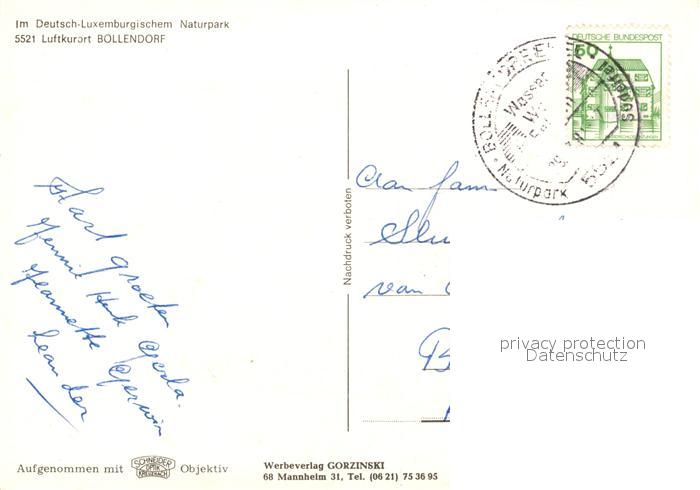 Im Deutsch-Luxemburgischem Naturpark
5521 Luftkurort BOLLENDORF
DEUTSCHE BUNDESPOST
BOLLENDORF
Südeifel
Naturpark
Nachdruck verboten
Aan fam
van
privacy protection
Datenschutz
Hart Groeten
Henk Gerda.
Jeannette Gerwin
Leander
Aufgenommen mit SCHNEIDER OPTIK KREUZNACH Objektiv
Werbeverlag GORZINSKI
68 Mannheim 31, Tel. (06 21) 75 36 95